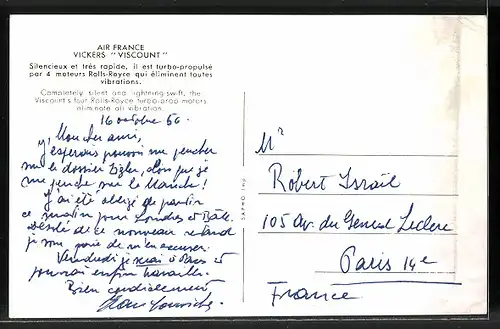 AIR FRANCE
VICKERS "VISCOUNT"
Silencieux et très rapide, il est turbo-propulsé
par 4 moteurs Rolls-Royce qui éliminent toutes
vibrations.
Completely silent and lightning-swift, the
Viscount's four Rolls-Royce turbo-prop motors
eliminate all vibration.
16 octobre 56.
Mon cher ami,
J'espérais pouvoir me pencher
sur le dossier Zigler, alors que je
me penche sur la Manche!
J'ai été obligé de partir
ce matin pour Londres et Bâle.
Désolé de ce nouveau retard
je vous prie de m'en excuser.
Vendredi je serai à Paris et
pourrai enfin travailler.
Bien cordialement
SAPHO Imp.
Mr
Robert Israël
105 Av. du General Leclerc
Paris 14e
France